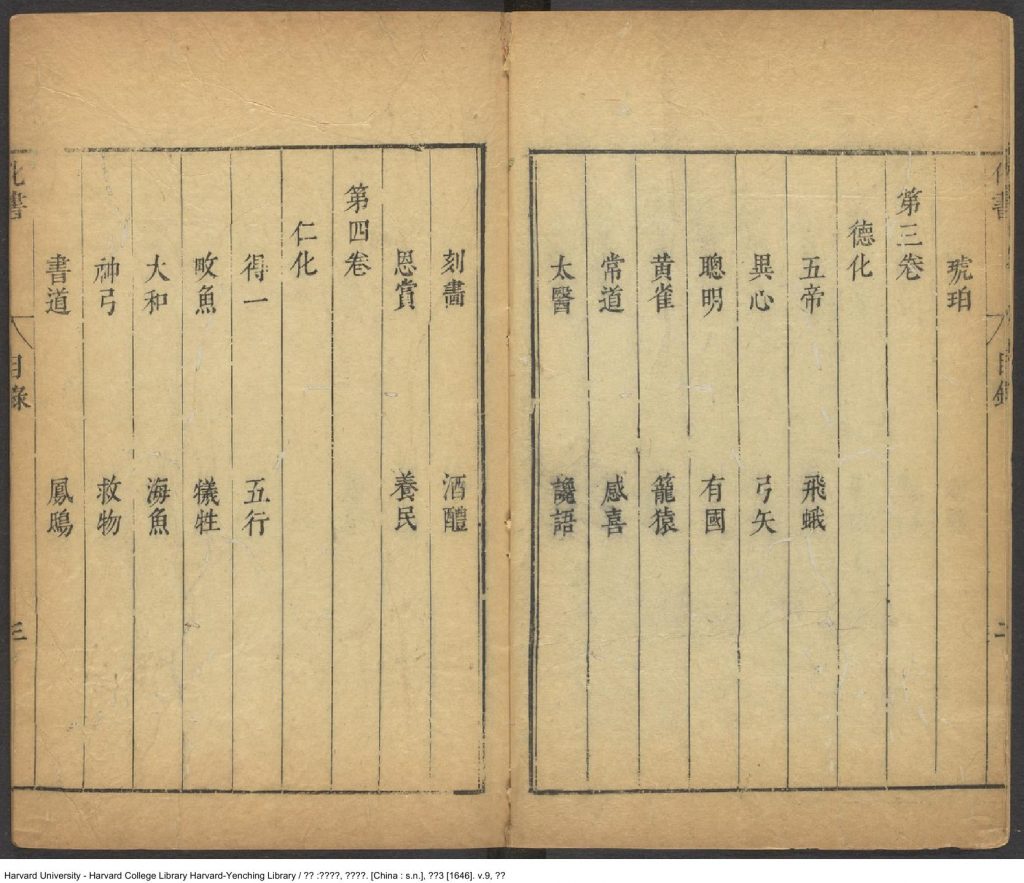 琥珀
第三卷
德化
五帝　飛蛾
異心　弓矢
聰明　有國
黃雀　籠猿
常道　感喜
太醫　讒語
刻畫　酒醴
恩賞　養民
第四卷
仁化
得一　五行
畋魚　犧牲
大和　海魚
神弓　救物
書道　鳳鴟
化書　目錄　三
Harvard University - Harvard College Library Harvard-Yenching Library / ?? :????, ????. [China : s.n.], ??3 [1646]. v.9, ??